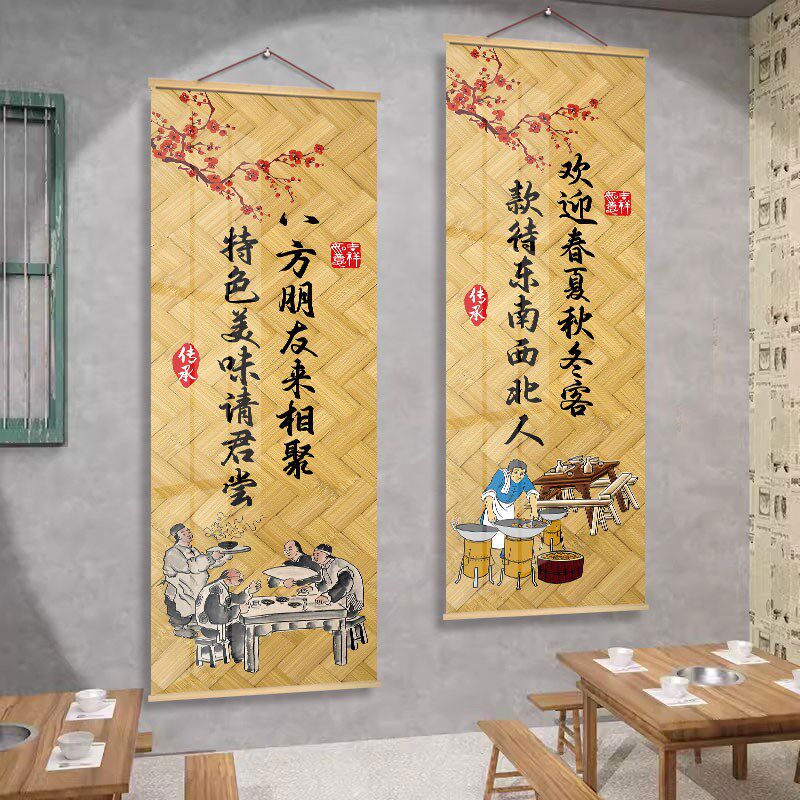 欢迎春夏秋冬客
款待东南西北人
吉祥
如意
传承
八方朋友来相聚
特色美味请君尝
吉祥
如意
传承